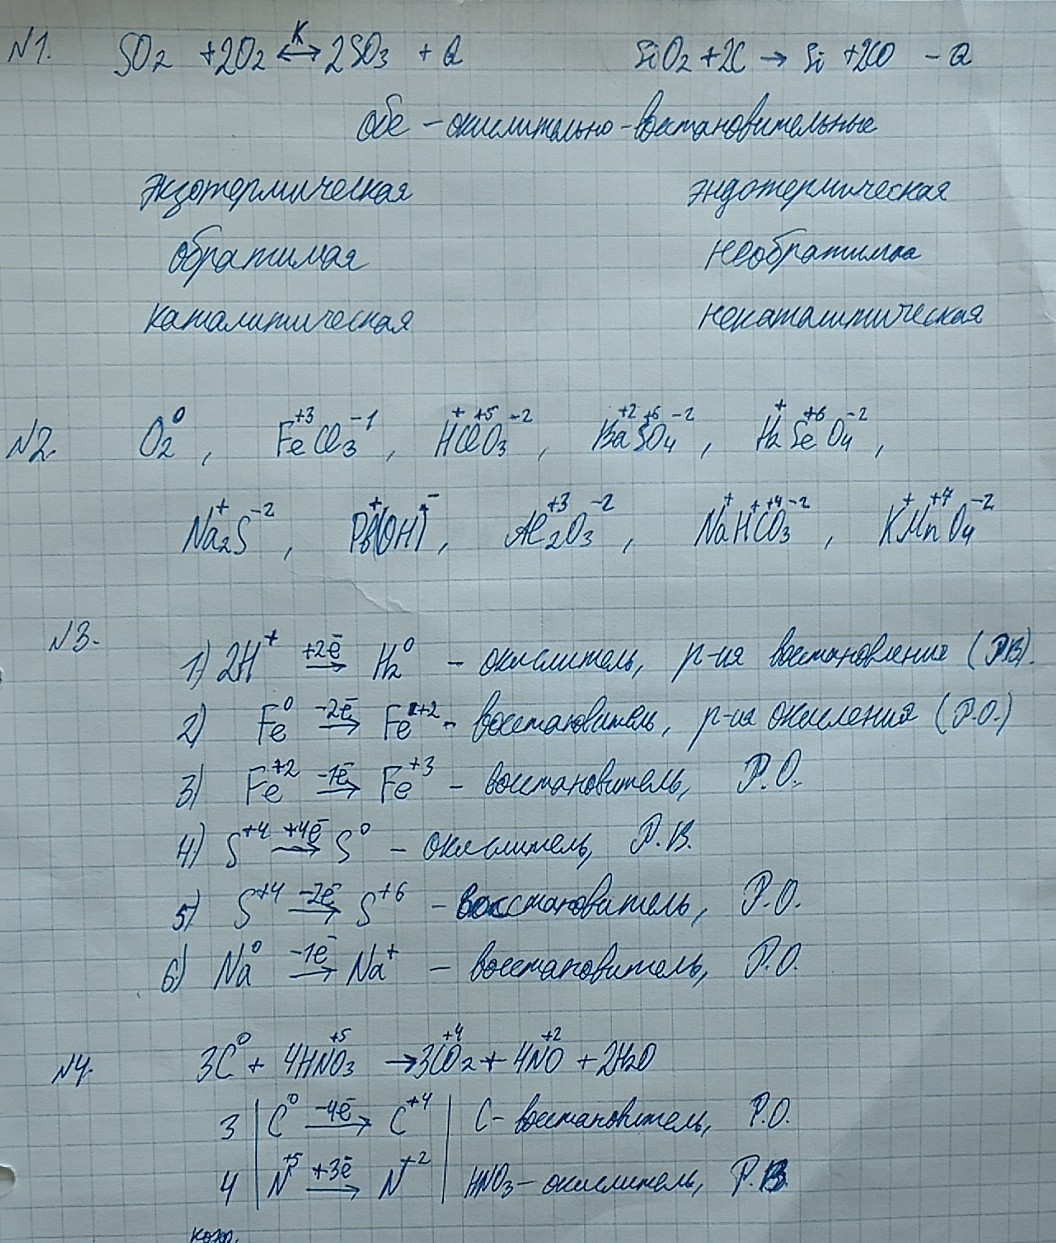 N1. SO2 +2O2 ⇄ᴷ 2SO3 + Q SiO2 +2C → Si +2CO - Q
обе - окислительно-востановительные
экзотермическая эндотермическая
обратимая необратимая
каталитическая некаталитическая
N2. O2⁰, Fe⁺³Cl3⁻¹, H⁺Cl⁺⁵O3⁻², Ba⁺²S⁺⁶O4⁻², H2⁺Se⁺⁶O4⁻²,
Na2⁺S⁻², Pb⁺(OH)⁻, Al2⁺³O3⁻², Na⁺H⁺C⁺⁴O3⁻², K⁺Mn⁺⁷O4⁻²
N3.
1) 2H⁺ +2ē→ H2⁰ - окислитель, р-ия восстановление (РВ).
2) Fe⁰ -2ē→ Fe⁺² - восстановитель, р-ия окисления (Р.О.)
3) Fe⁺² -1ē→ Fe⁺³ - восстановитель, Р.О.
4) S⁺⁴ +4ē→ S⁰ - окислитель, Р.В.
5) S⁺⁴ -2ē→ S⁺⁶ - восстановитель, Р.О.
6) Na⁰ -1ē→ Na⁺ - восстановитель, Р.О.
N4. 3C⁰ + 4HN⁺⁵O3 → 3C⁺⁴O2 + 4N⁺²O + 2H2O
3 | C⁰ -4ē→ C⁺⁴ | C - восстановитель, Р.О.
4 | N⁺⁵ +3ē→ N⁺² | HNO3 - окислитель, Р.В.